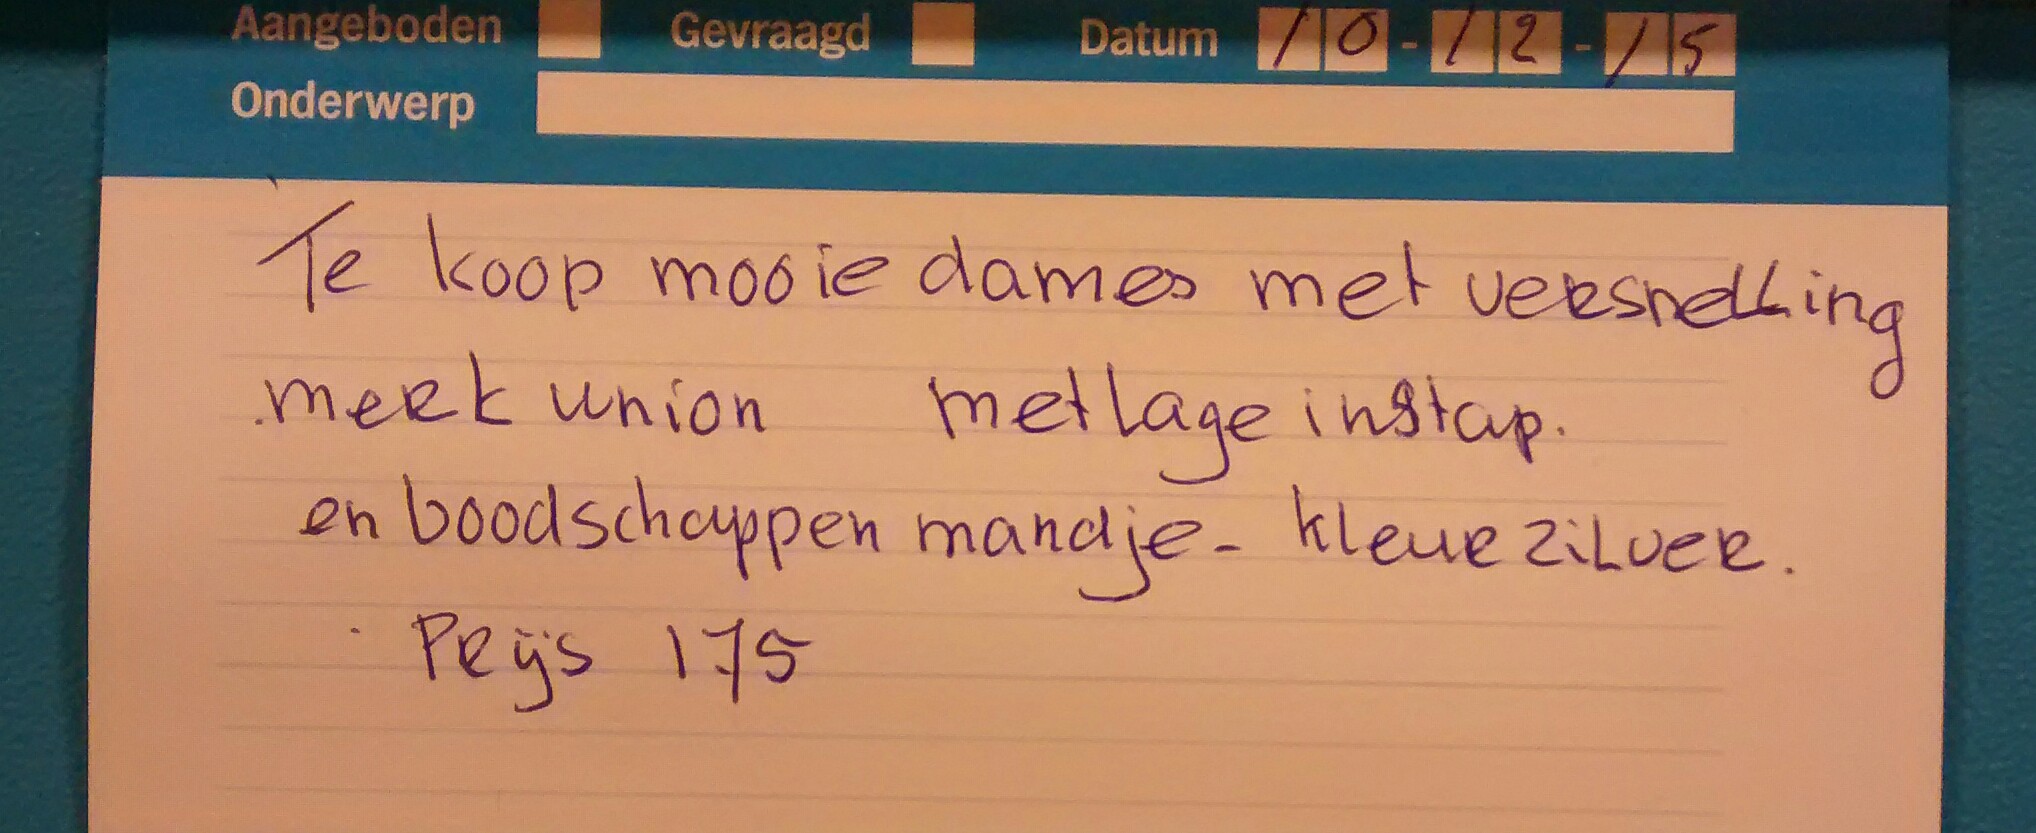 Aangeboden Gevraagd Datum 10-12-15
Onderwerp
Te koop mooie dames met versnelling
merk union met lage instap.
en boodschappen mandje - kleur zilver.
Prijs 175